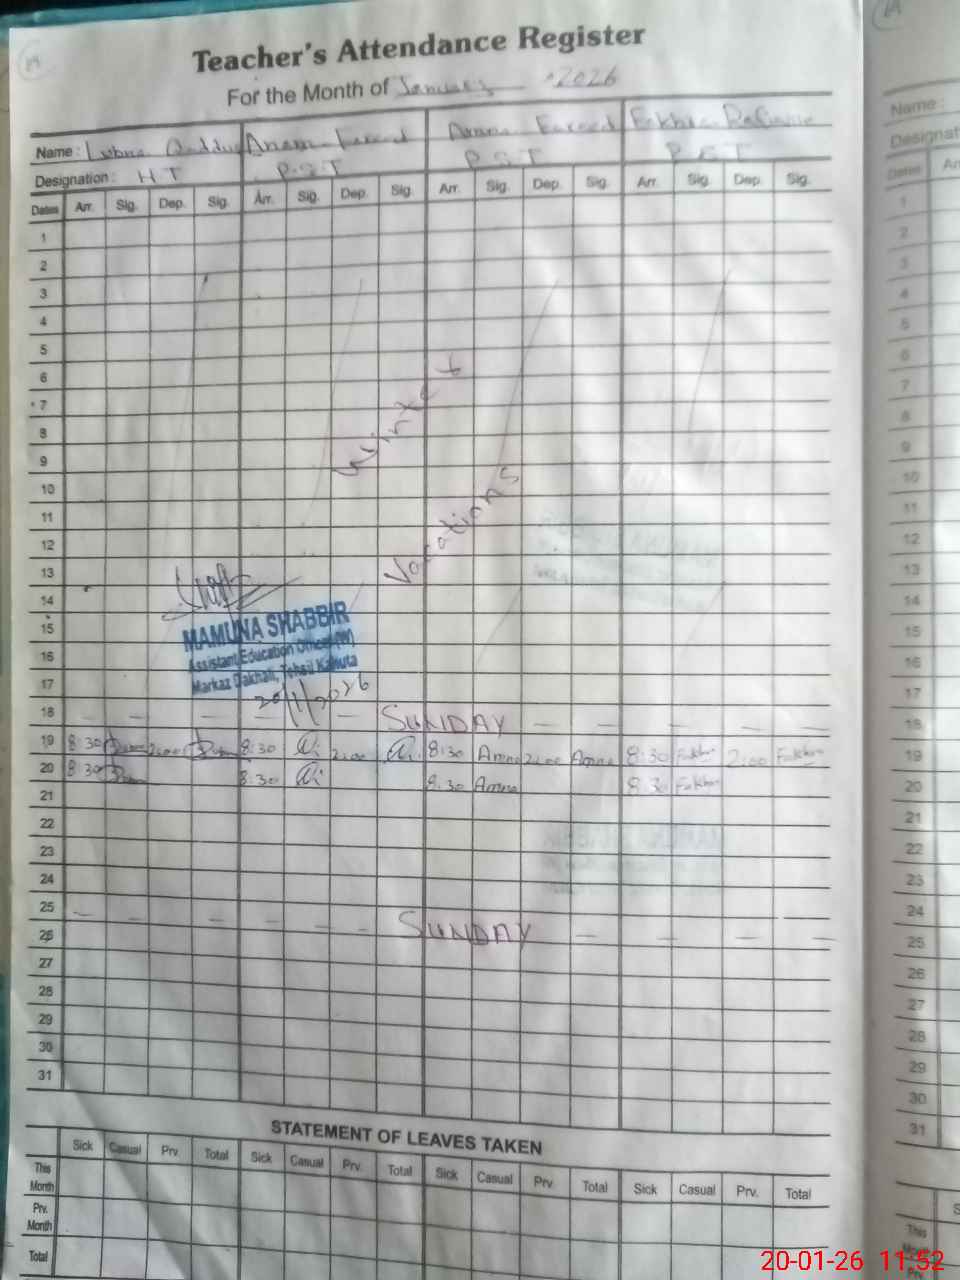 Teacher's Attendance Register
For the Month of January 2026
Name : Lubna Quddus Anam Fareed Amna Fareed Fakhra
Designation : H T P.S.T P.S.T P.S.T
Dates Arr. Sig. Dep. Sig. Arr. Sig. Dep. Sig. Arr. Sig. Dep. Sig. Arr. Sig. Dep. Sig.
1
2
3
4
5
6
7
8
9
10
11
12
13
14
15
16
17
Winter
Vacations
MAMUNA SHABBIR
Assistant Education Officer (W)
Markaz Dakhali, Tehsil Kahuta
20/1/2026
18 SUNDAY
19 8:30 2:00 8:30 2:00 8:30 Amna 2:00 Amna 8:30 Fakhra 2:00 Fakhra
20 8:30 8:30 8:30 Amna 8:30 Fakhra
21
22
23
24
25 SUNDAY
26
27
28
29
30
31
STATEMENT OF LEAVES TAKEN
Sick Casual Prv. Total Sick Casual Prv. Total Sick Casual Prv. Total Sick Casual Prv. Total
This Month
Prv. Month
Total
Name :
Dates
1
2
3
4
5
6
7
8
9
10
11
12
13
14
15
16
17
18
19
20
21
22
23
24
25
26
27
28
29
30
31
This
20-01-26 11:52